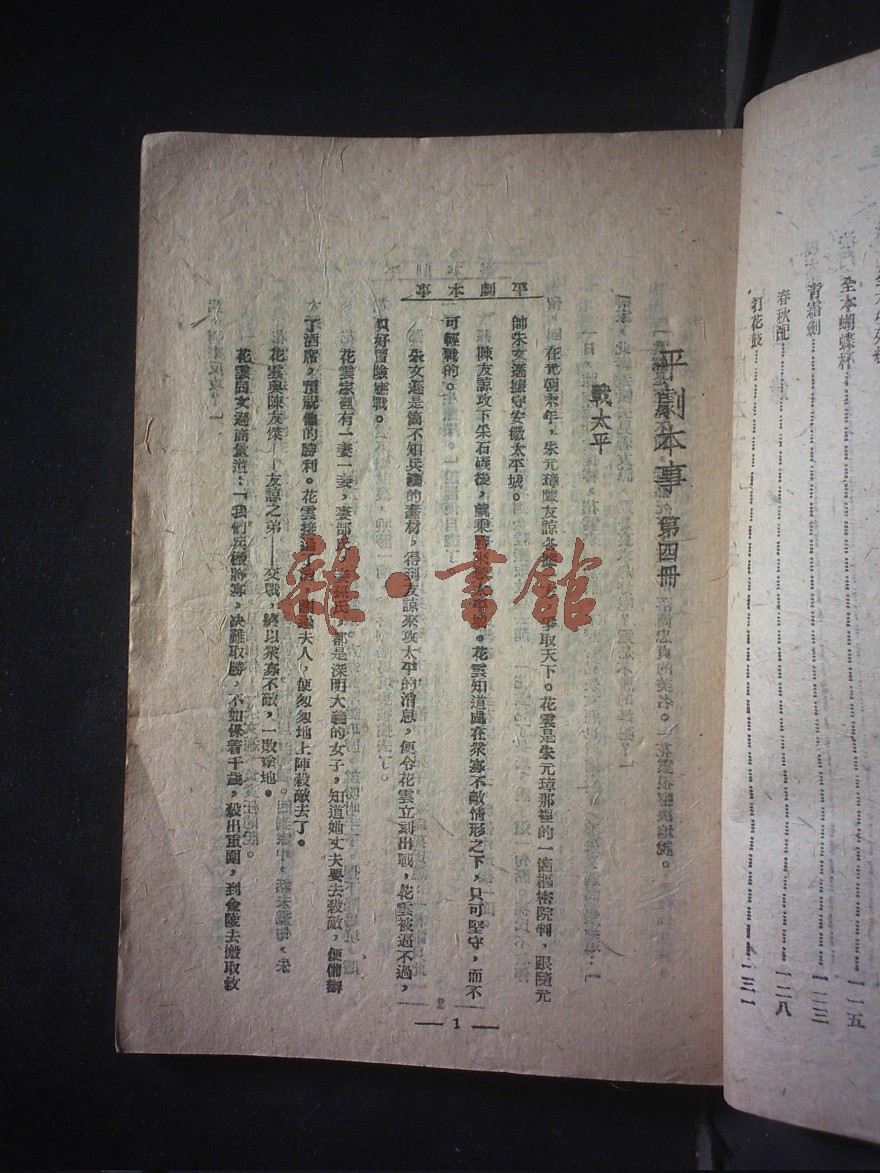 全本蝴蝶杯……一一五
青霜劍……一二三
春秋配……一二八
打花鼓……一三一
平劇本事 第四冊
戰太平
平劇本事
在元朝末年，朱元璋陳友諒各 爭取天下。花雲是朱元璋那裡的一個樞密院判，跟隨元
帥朱文遜據守安徽太平城。
陳友諒攻下采石磯後，就乘勝來 太平城。花雲知道處在衆寡不敵情形之下，只可堅守，而不
可輕戰的。
朱文遜是箇不知兵機的蠢材，得到友諒來攻太平的消息，便令花雲立刻出戰，花雲被逼不過，
只好冒險應戰。
花雲家裡有一妻一妾，妻郜氏，妾孫氏，都是深明大義的女子，知道她丈夫要去殺敵，便備辦
了酒席，預祝他的勝利。花雲接過 夫人，便匆匆地上陣殺敵去了。
花雲與陳友傑——友諒之弟——交戰，終以衆寡不敵，一敗塗地。
花雲向文遜商量道：「我們兵微將寡，決難取勝，不如保著千歲，殺出重圍，到金陵去搬取救
— 1 —
雜·書館